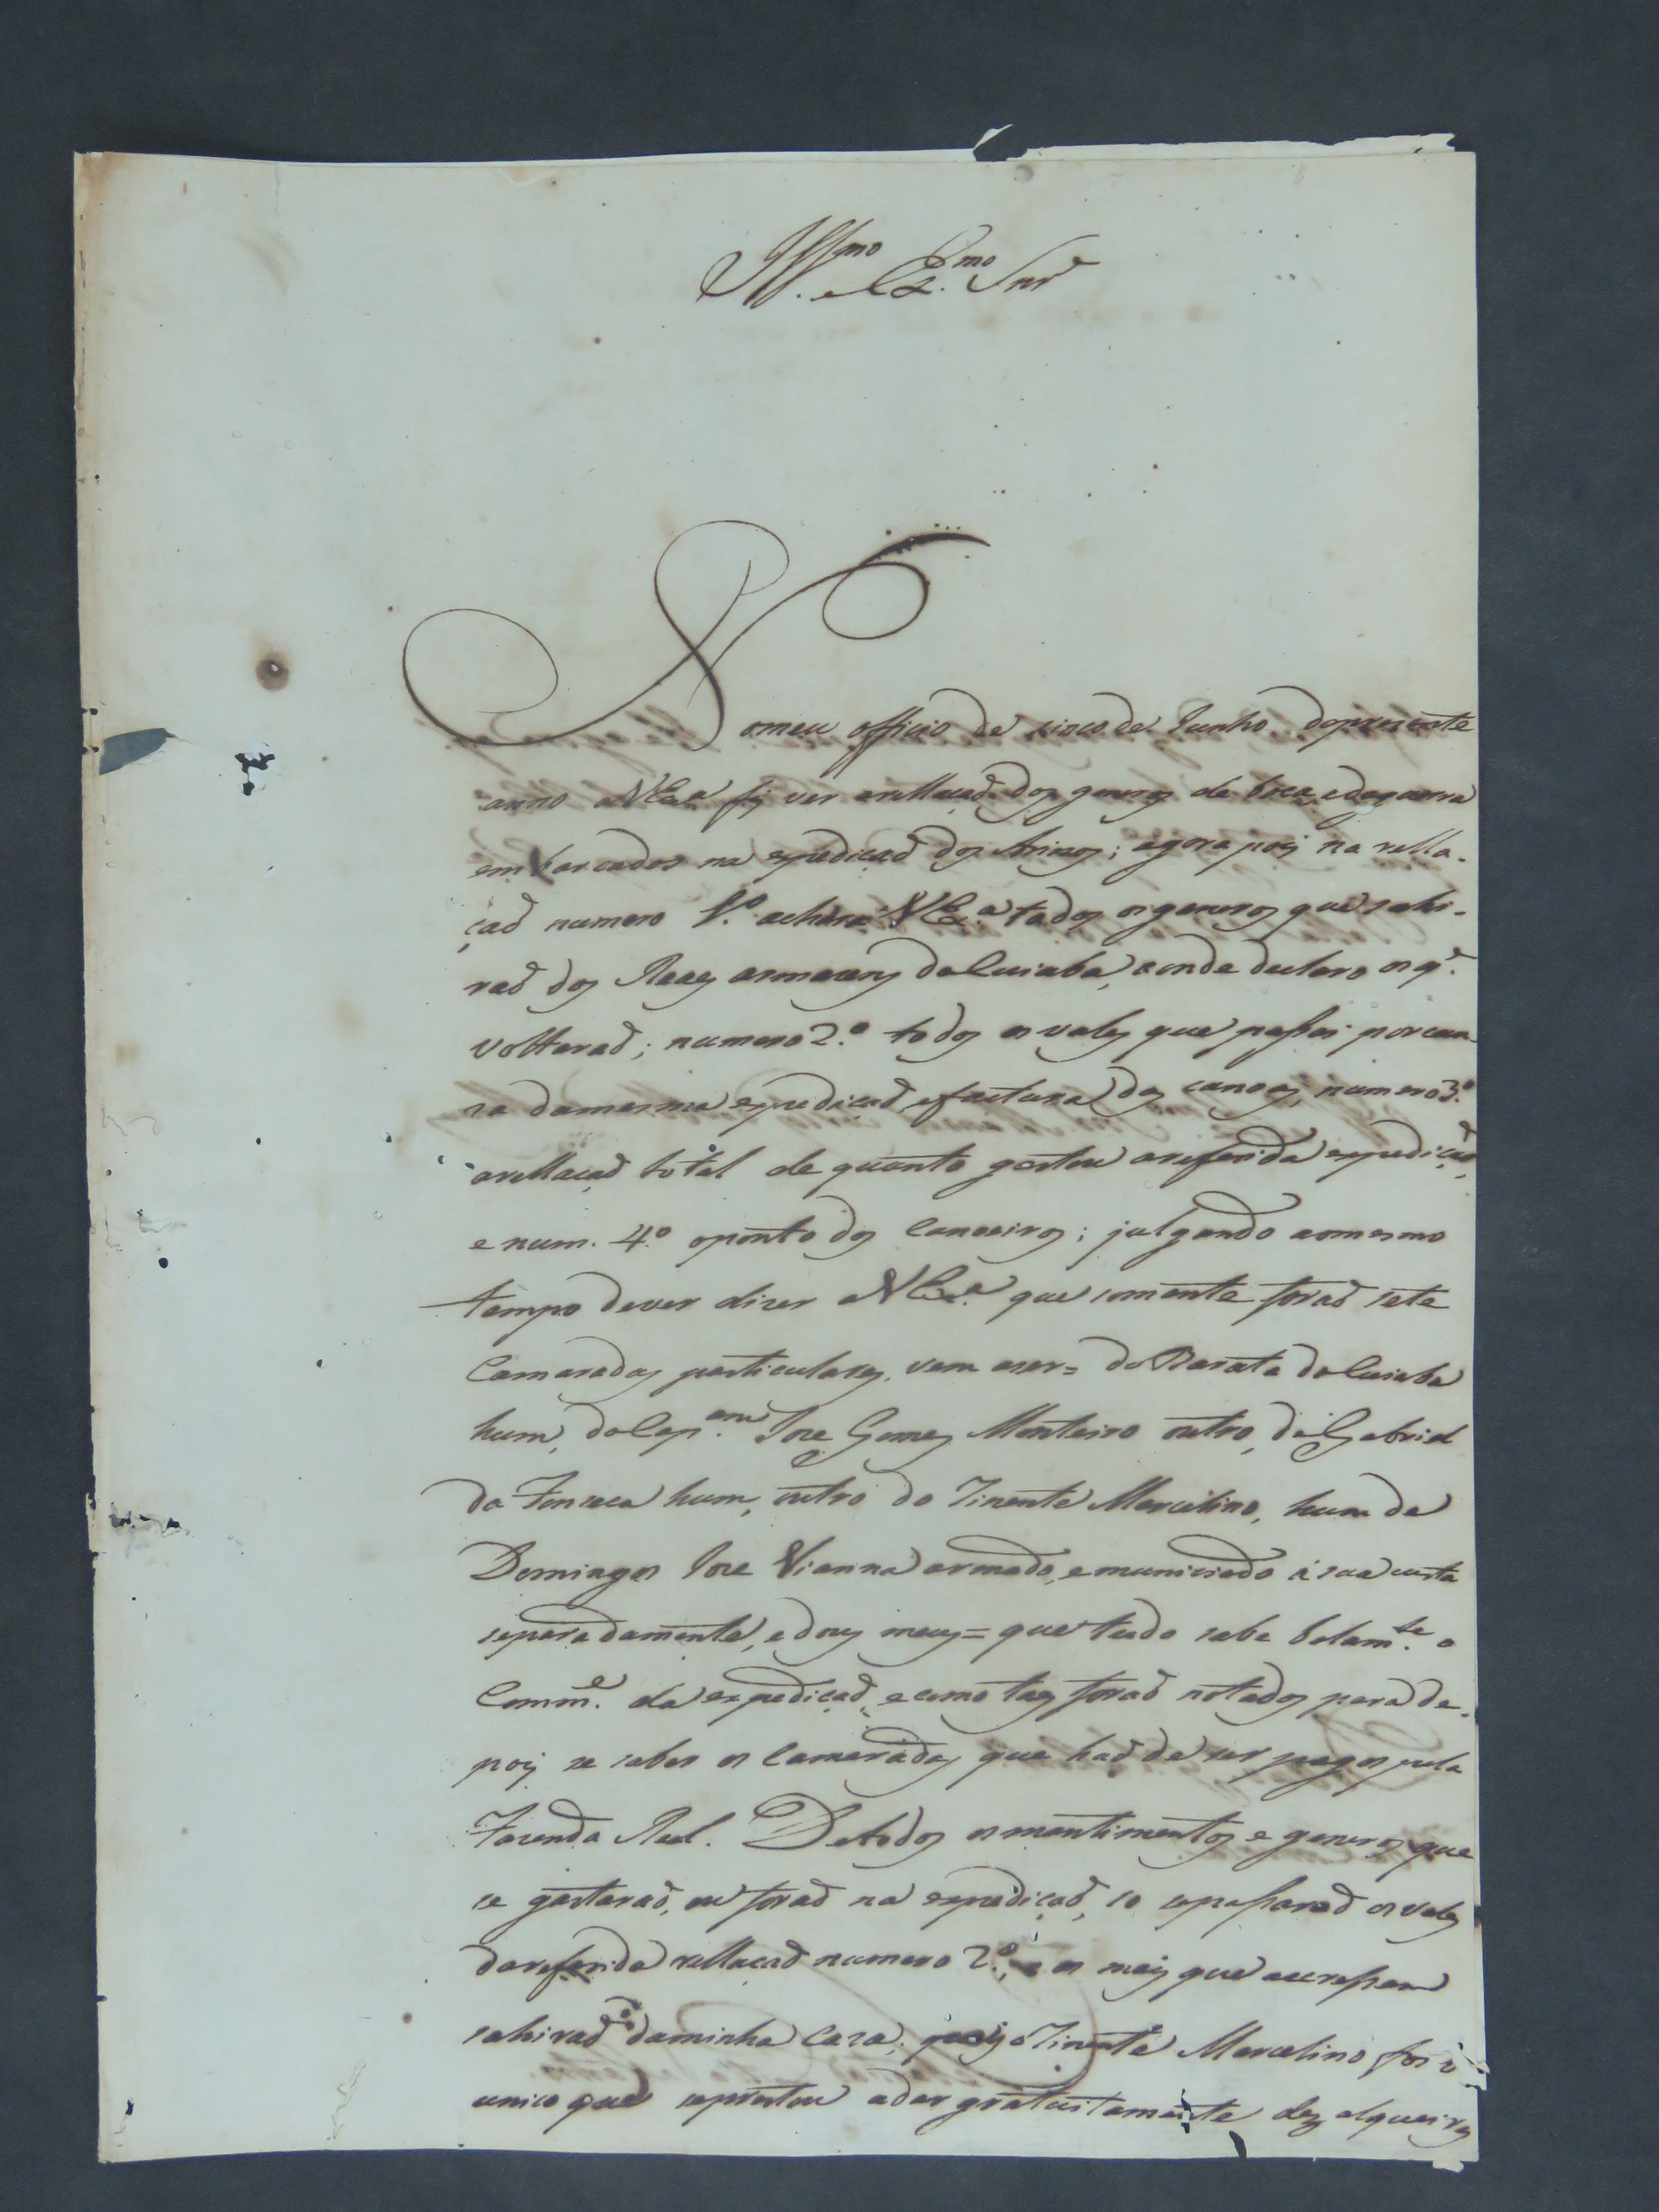 Illmo. e Exmo. Snr
No meu officio de cinco de Junho do prezente
anno a V Exa. fiz ver a rellação dos generos de boca, e de guerra
embarcados na expedição dos Arinos; agora pois na rella-
ção numero 1.o achará V Exa. todos os generos que sahi-
rão dos Reaes armazens do Cuiabá, aonde declaro os q.
voltarão; numero 2.o todos os vales que passei por cau-
za da mesma expedição, e factura das canoas, numero 3.o
a rellação total de quanto gastou a referida expedição,
e num. 4.o o ponto dos Canoeiros; julgando ao mesmo
tempo dever dizer a V Exa. que somente forão sete
Camaradas particulares, vem a ser = do Barata do Cuiaba
hum, do Cap.am Joze Gomes Monteiro outro, de Gabriel
da Fonseca hum, outro do Tinente Marcelino, hum de
Domingos Joze Vianna armado, e municiado á sua custa
separadamente, e dous meus = que tudo sabe belam.te o
Comm.e da expedição, e como taes forão notados para de-
pois se saber os Camaradas que hão de ser pagos pela
Fazenda Real. De todos os mantimentos e generos que
se gastarão, ou forão na expedição, so se passarão os vales
da referida rellação numero 2.o, e os mais que acressem
sahirão da minha Caza; pois o Tinente Marcelino foi o
unico que se prestou a dar gratuitamente dez alqueires